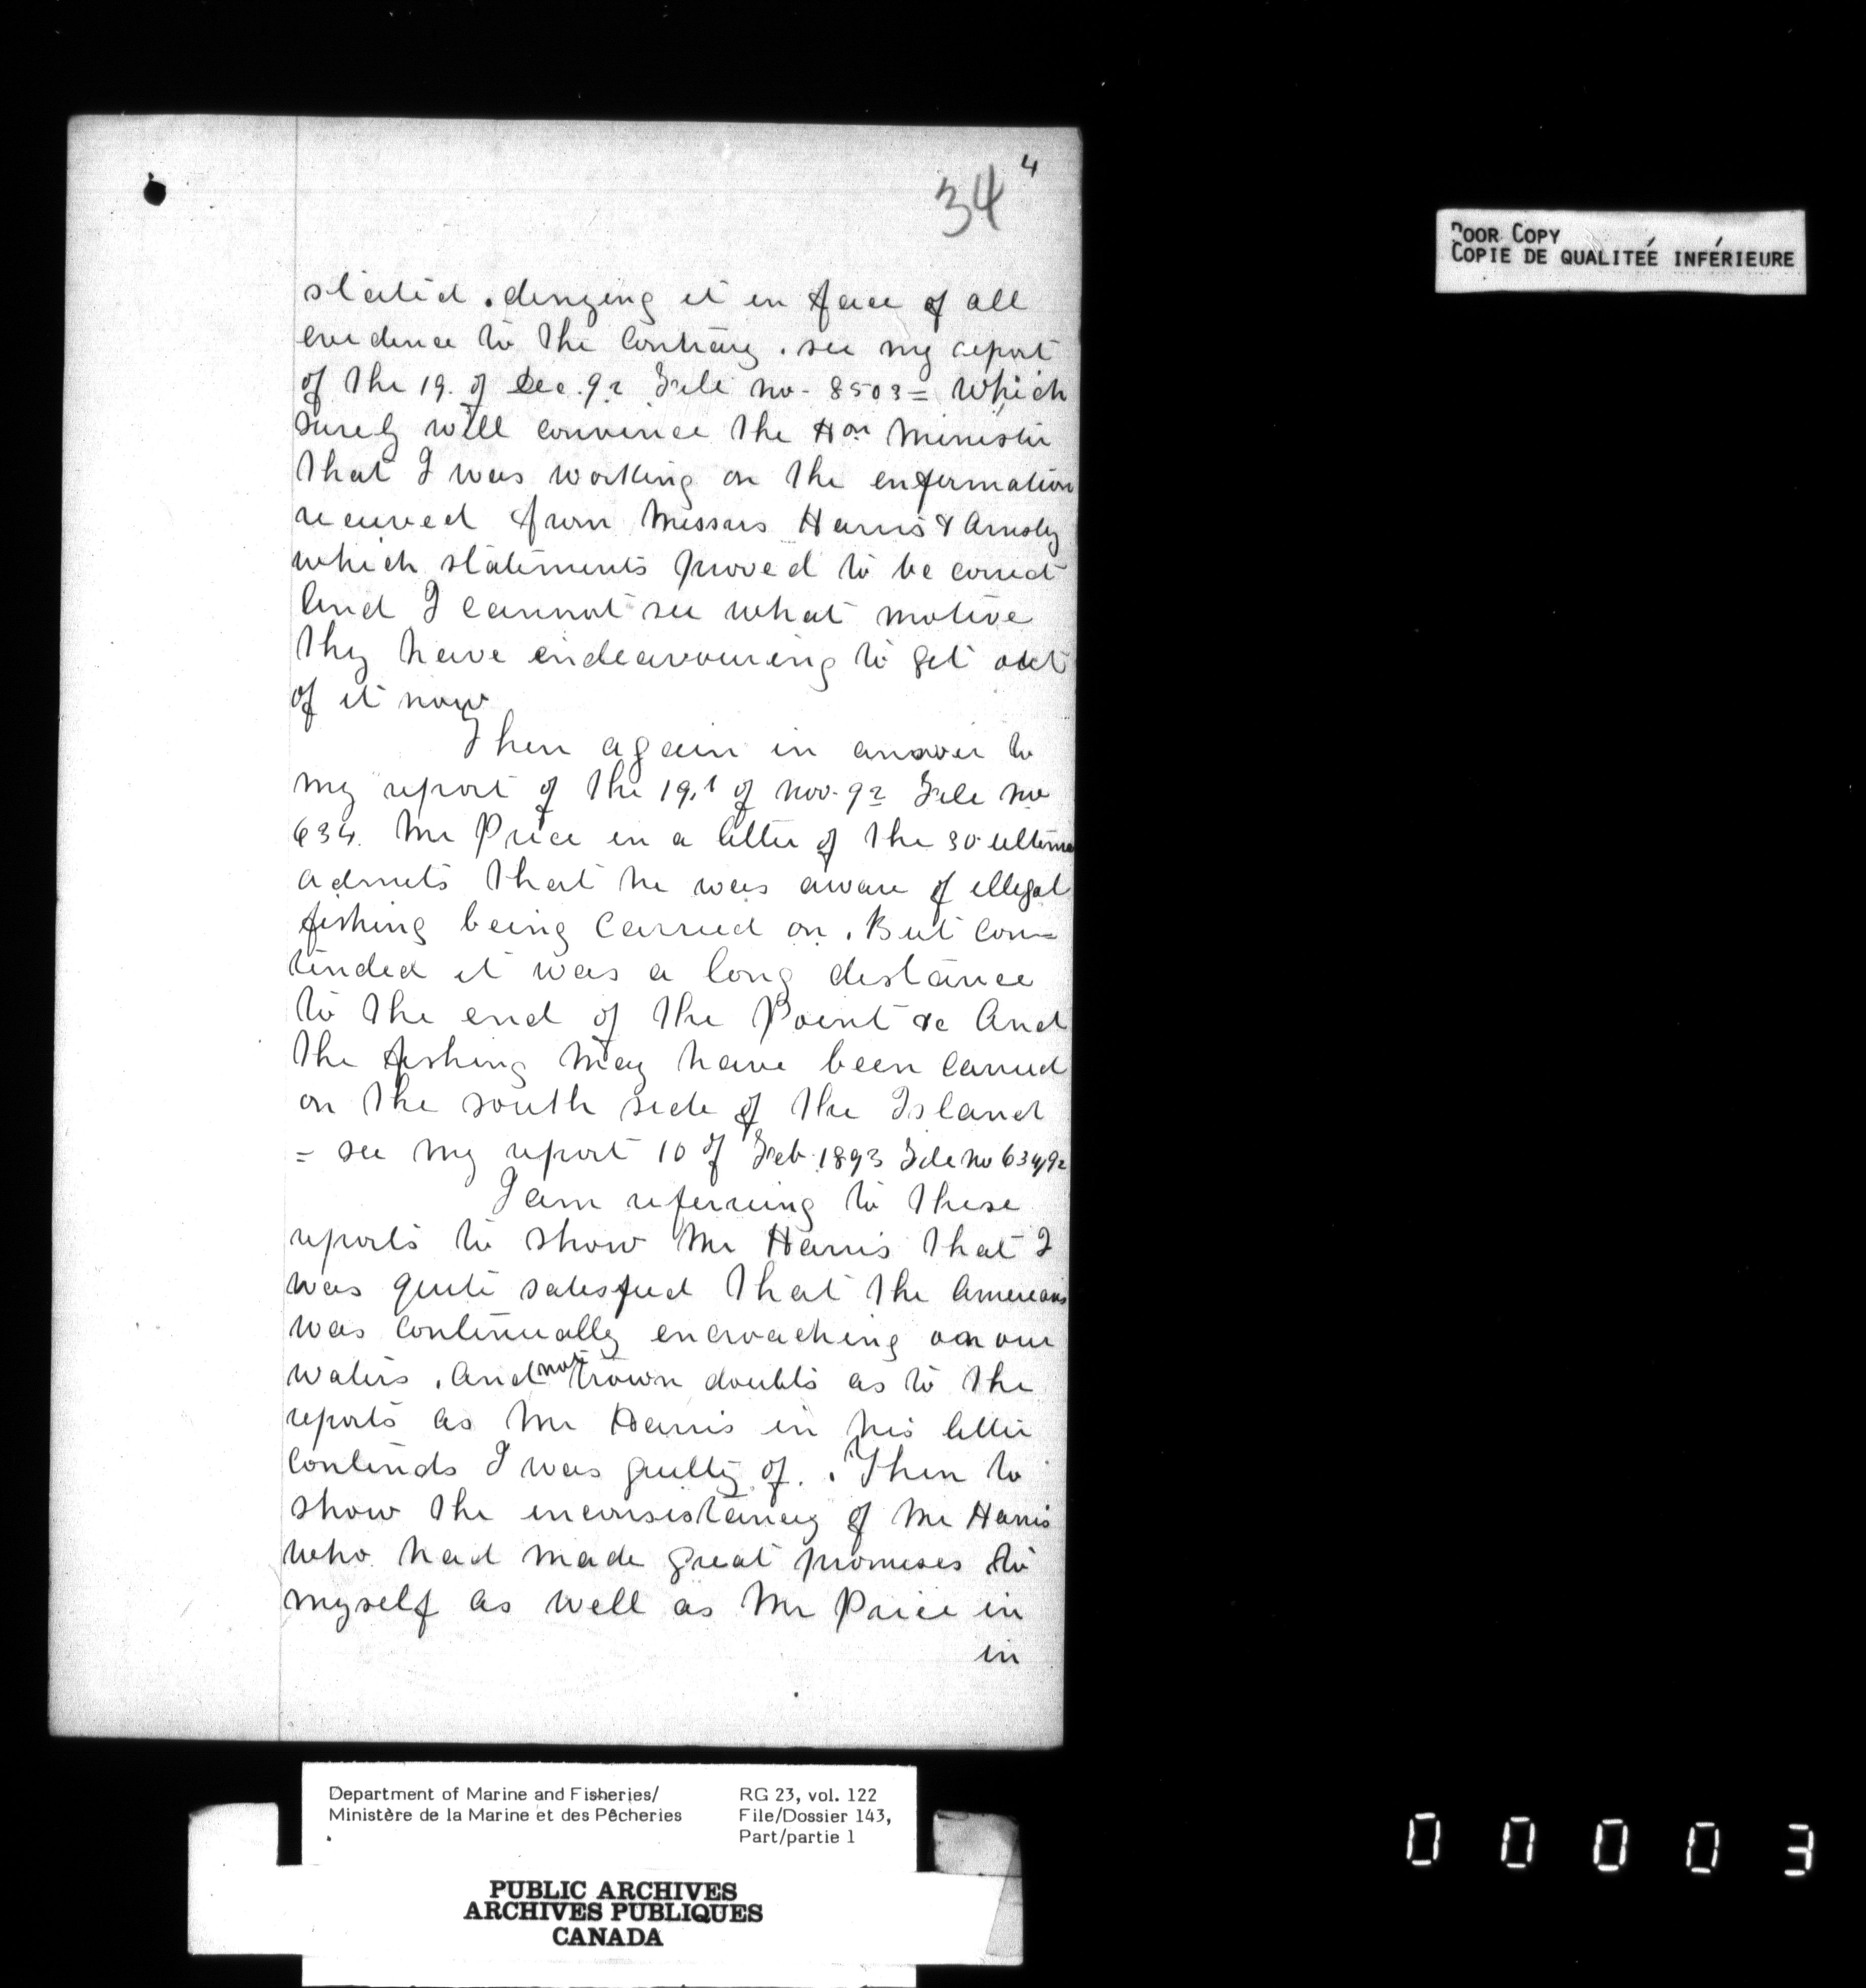 4
34
stated. denying it in face of all
evidence to the Contrary. see my report
of the 19. of Dec. 92 File no. 8503 = Which
surely will convince the Hon Minister
that I was working on the enformation
received from Messrs Harris & Amsby
which statements proved to be correct
And I cannot see what motive
they have endeavouring to get out
of it now
Then again in answer to
my report of the 19.1 of nov. 92 File no
634. Mr Price in a letter of the 30 ultimo
admits that he was aware of illegal
fishing being Carried on. But Con=
tended it was a long distance
to the end of the Point &c And
the fishing may have been Carried
on the south side of the Island
= see my report 10 of Feb. 1893 File no 634/92
I am referring to these
reports to show Mr Harris that I
was quite satisfied that the Americans
was Continually encroaching on our
waters. And not trown doubts as to the
reports as Mr Harris in his letter
Contends I was guilty of.. Then to
show the inconsistancy of Mr Harris
who had made great promises to
myself as well as Mr Price in
in
POOR COPY
COPIE DE QUALITEÉ INFÉRIEURE
Department of Marine and Fisheries/
Ministère de la Marine et des Pêcheries
RG 23, vol. 122
File/Dossier 143,
Part/partie 1
PUBLIC ARCHIVES
ARCHIVES PUBLIQUES
CANADA
00003